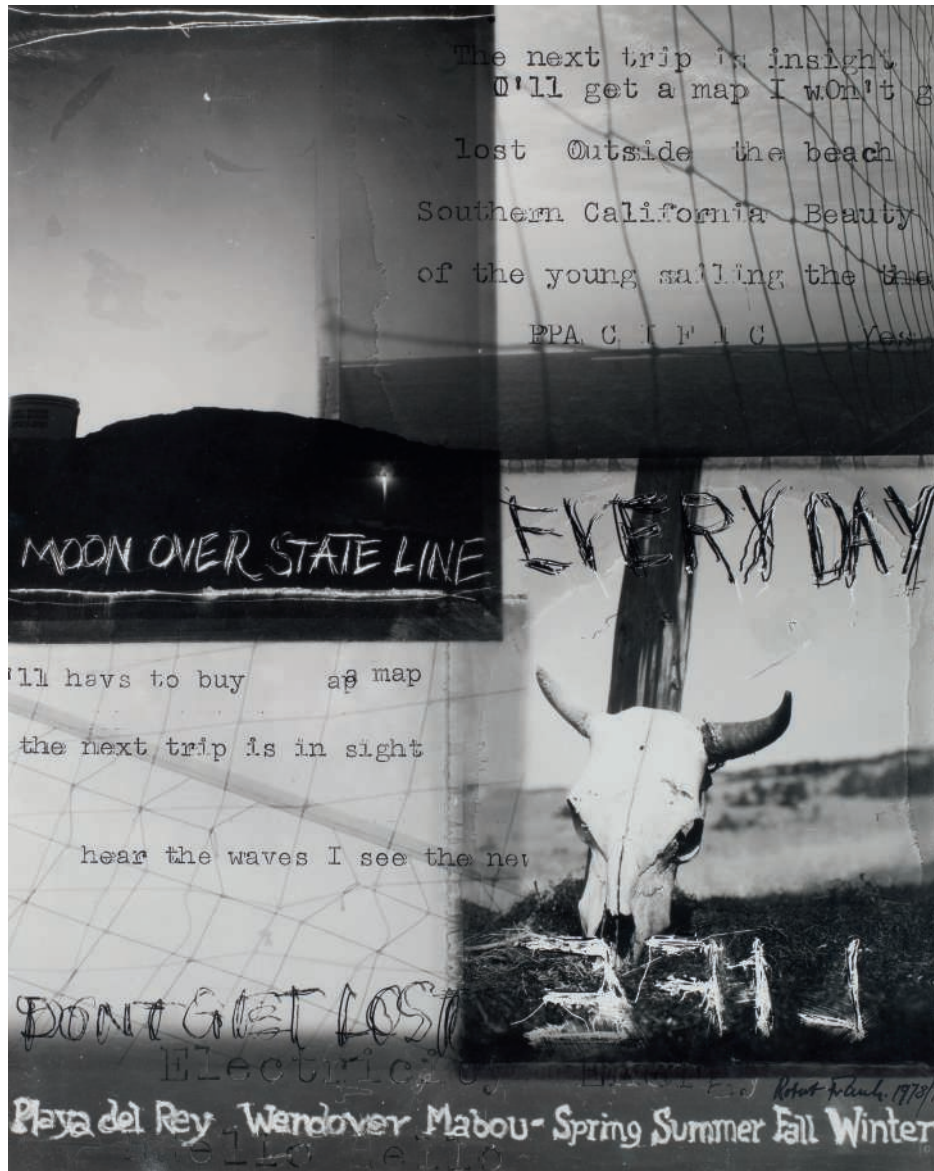 The next trip is insight
I'll get a map I wOn't g
lost Outside the beach
Southern California Beauty
of the young sailling the the
PPA C I F I C Yes
MOON OVER STATE LINE
EVERYDAY
'll havs to buy a map
the next trip is in sight
hear the waves I see the net
LIFE
DONT GET LOST
Electricity
Robert Frank 1978/
Playa del Rey Wendover Mabou - Spring Summer Fall Winter
Hello Hello